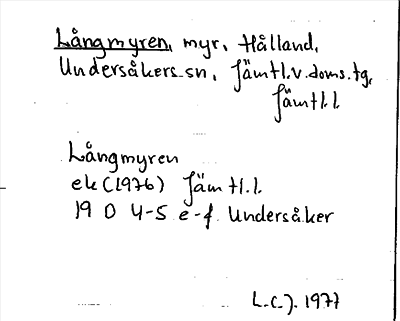 Långmyren, myr, Hålland,
Undersåkers sn, Jämtl.v.doms.tg,
Jämtl.l.
Långmyren
ek(1976) Jämtl.l.
19 D 4-5 e-f Undersåker
L.C.J. 1977